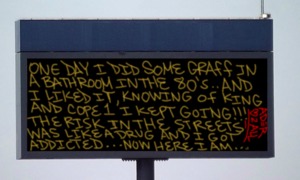 ONE DAY I DID SOME GRAFF IN
A BATHROOM IN THE 80'S..AND
I LIKED IT, KNOWING OF KING
AND COPE 1 KEPT GOING!!!
THE RISK IN THE STREETS
WAS LIKE A DRUG AND I GOT
ADDICTED...NOW HERE I AM...